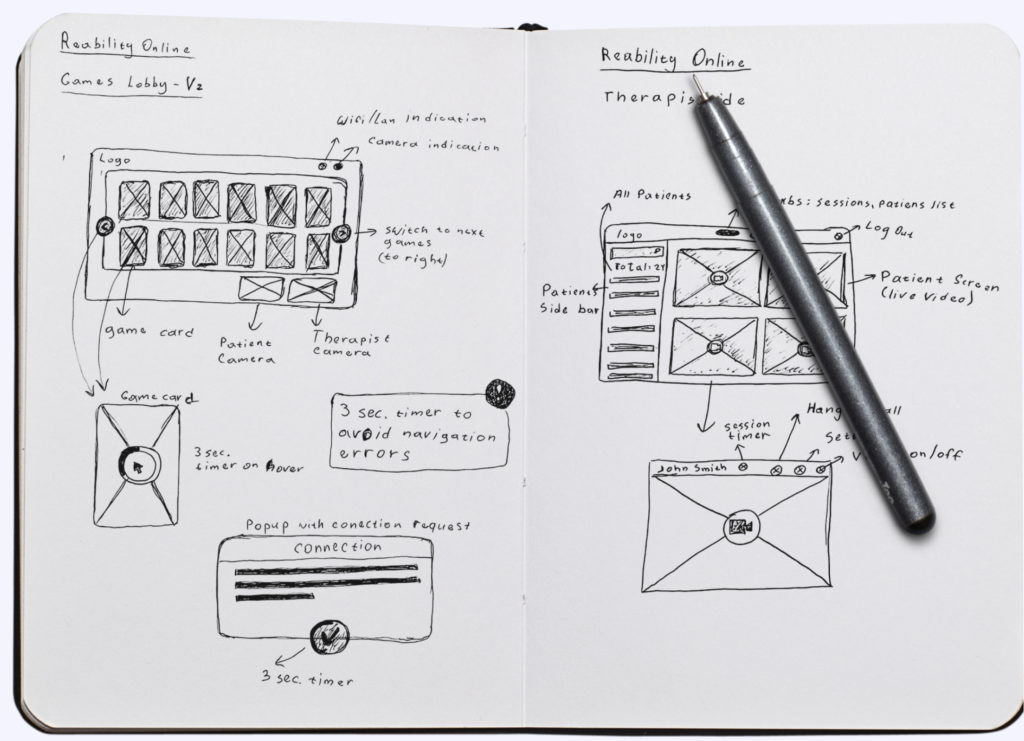 Reability Online
Games Lobby - V2
Wifi/Lan indication
camera indication
Logo
switch to next
games
(to right)
game card
Patient
Camera
Therapist
camera
Game card
3 sec.
timer on hover
3 sec. timer to
avoid navigation
errors
Popup with conection request
connection
3 sec. timer
Reability Online
Therapis ide
All Patients
bs: sessions, patiens list
Log Out
logo
Total: 24
Patients
Side bar
Patient Screen
(live Video)
Hang all
session
timer
Set
V on/off
John Smith